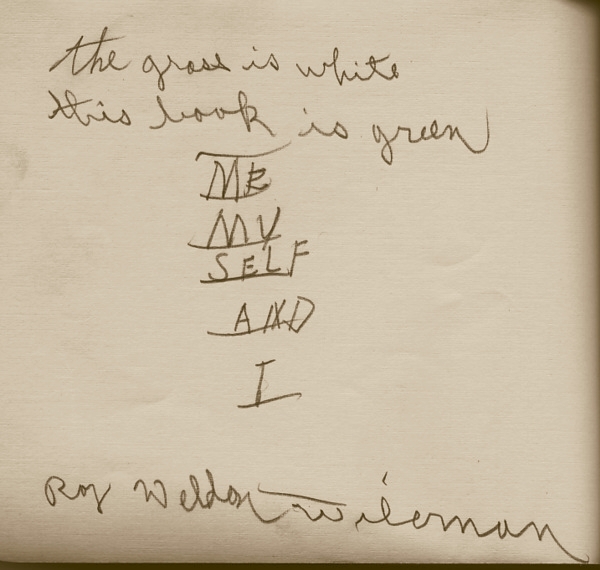 the grass is white
this book is green
ME
MY
SELF
AND
I
Roy Weldon Wileman